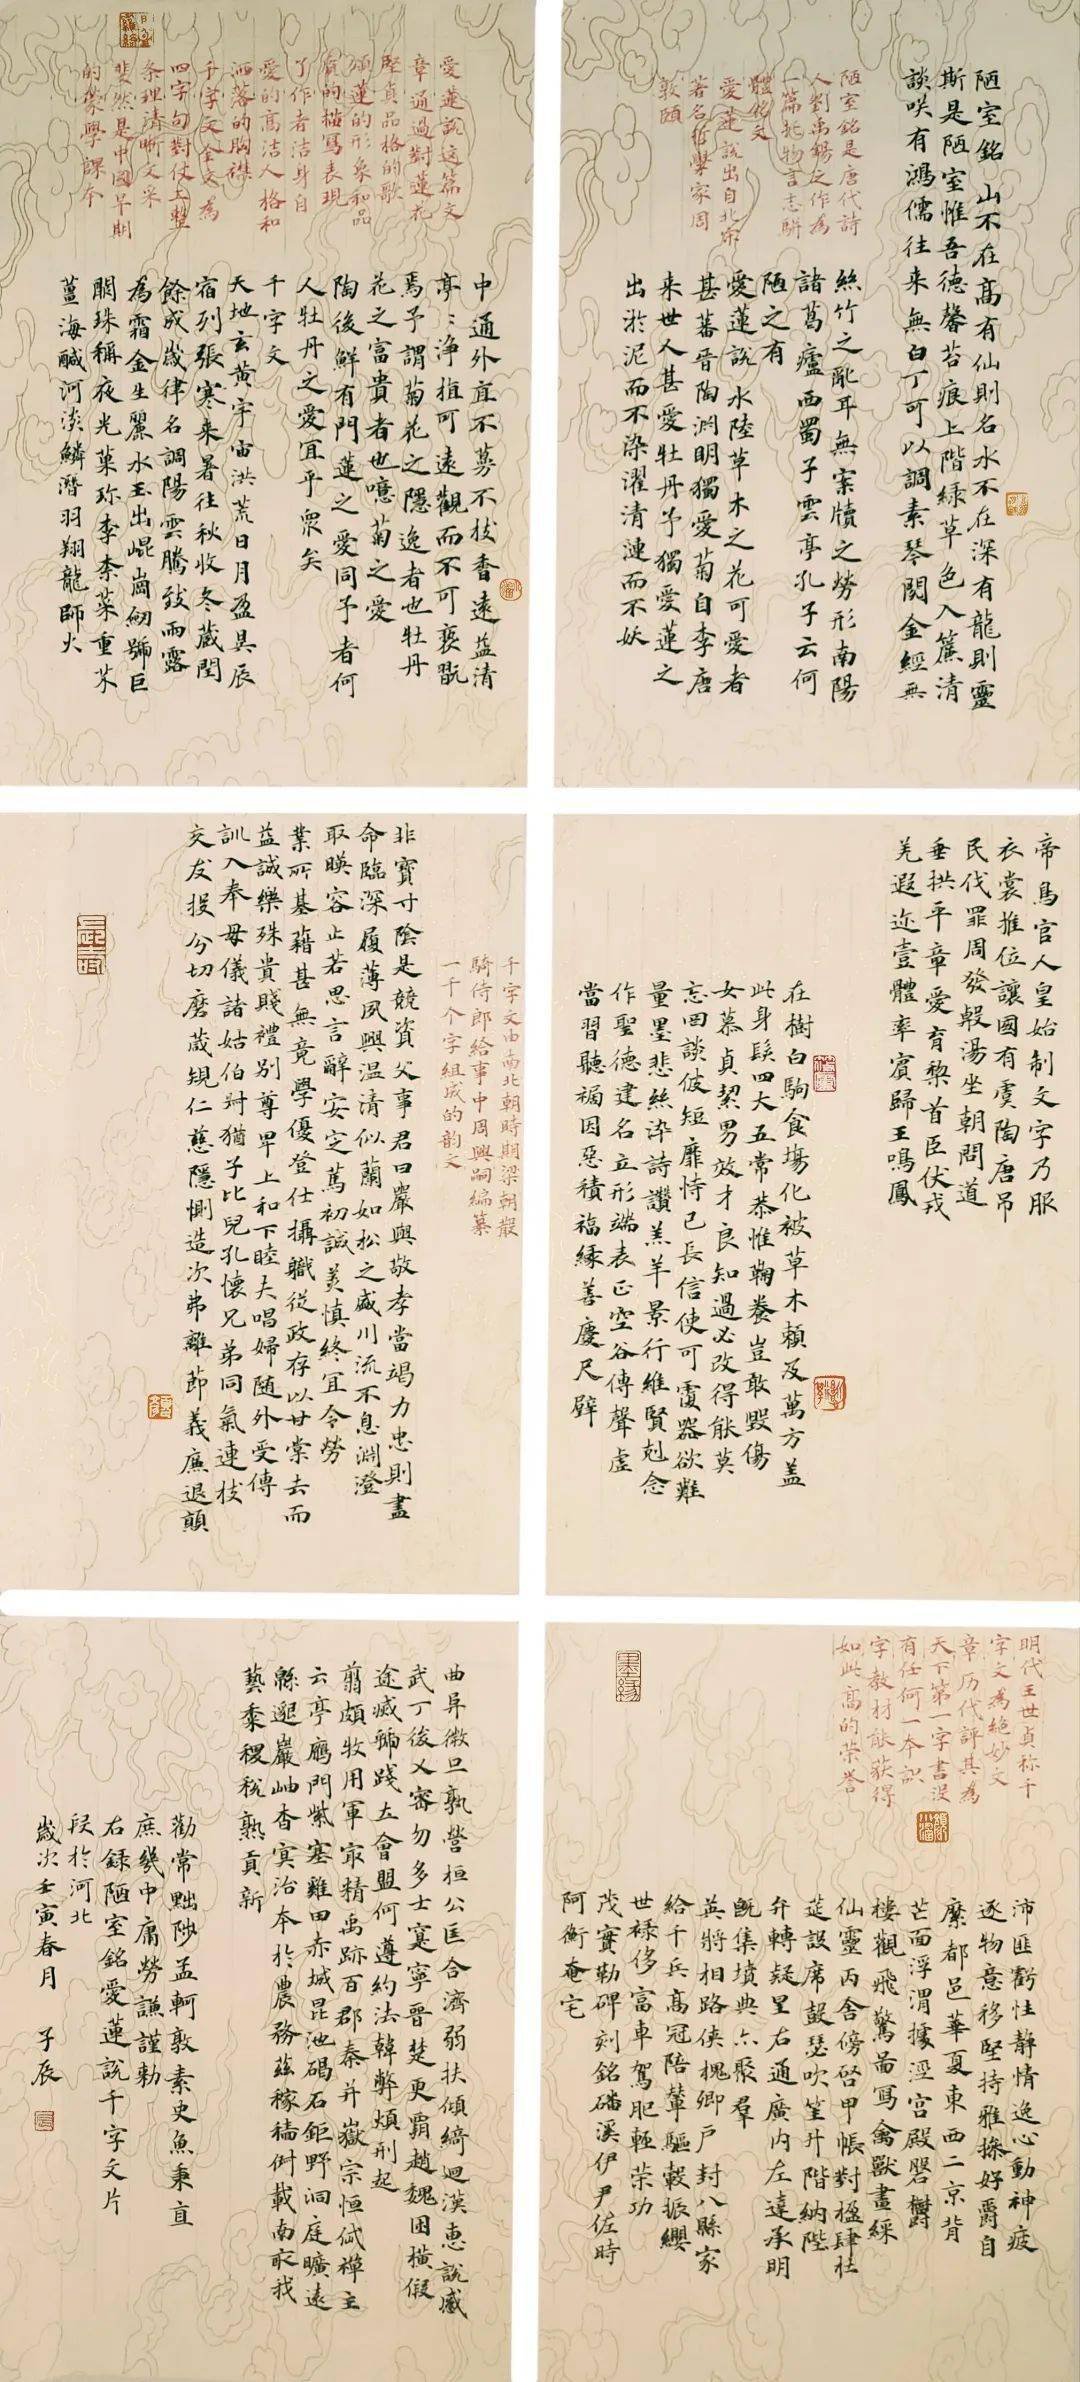 陋室銘 山不在高有仙則名水不在深有龍則靈
斯是陋室惟吾德馨苔痕上階緑草色入簾清
談咲有鴻儒往来無白丁可以調素琴閱金經無
陋室銘是唐代詩
人劉禹錫之作為
一篇托物言志駢
體銘文
愛蓮說出自北宋
著名哲學家周
敦頤
絲竹之亂耳無案牘之勞形南陽
諸葛廬西蜀子雲亭孔子云何
陋之有
愛蓮說 水陸草木之花可愛者
甚蕃晉陶淵明獨愛菊自李唐
来世人甚愛牡丹予獨愛蓮之
出於泥而不染濯清漣而不妖
愛蓮說這篇文
章通過對蓮花
堅貞品格的歌
頌蓮的形象和品
質的描寫表現
了作者洁身自
愛的高洁人格和
洒落的胸襟
千字文全文為
四字句對仗工整
条理清晰文采
斐然是中國早期
的蒙學課本
中通外直不蔓不枝香遠益清
亭〻淨植可遠觀而不可褻翫
焉予謂菊花之隱逸者也牡丹
花之富貴者也噫菊之愛
陶後鮮有門蓮之愛同予者何
人牡丹之愛宜乎衆矣
千字文
天地玄黄宇宙洪荒日月盈昃辰
宿列張寒来暑往秋收冬蔵閏
餘成歲律名調陽雲騰致雨露
為霜金生麗水玉出崐崗劒號巨
闕珠稱夜光菓珍李柰菜重芥
薑海鹹河淡鱗潛羽翔龍師火
帝鳥官人皇始制文字乃服
衣裳推位讓國有虞陶唐吊
民伐罪周發殷湯坐朝問道
垂拱平章愛育黎首臣伏戎
羌遐迩壹體率賓歸王鳴鳳
在樹白駒食塲化被草木賴及萬方盖
此身髮四大五常恭惟鞠養豈敢毀傷
女慕貞絜男效才良知過必改得能莫
忘罔談彼短靡恃己長信使可覆器欲難
量墨悲絲染詩讚羔羊景行維賢剋念
作聖德建名立形端表正空谷傳聲虛
當習聽禍因惡積福緣善慶尺璧
千字文由南北朝時期梁朝散
騎侍郎給事中周興嗣編纂
一千个字組成的韵文
非寶寸陰是競資父事君曰嚴與敬孝當竭力忠則盡
命臨深履薄夙興温清似蘭如松之盛川流不息淵澄
取暎容止若思言辭安定篤初誠美慎終宜令勞
業所基藉甚無竟學優登仕攝職從政存以甘棠去而
益誠樂殊貴賤禮別尊卑上和下睦夫唱婦随外受傳
訓入奉母儀諸姑伯叔猶子比兒孔懷兄弟同氣連枝
交友投分切磨葴規仁慈隱惻造次弗離節義廉退顛
明代王世貞称千
字文為絶妙文
章历代評其為
天下第一字書没
有任何一本識
字教材能获得
如此高的荣誉
沛匪虧性静情逸心動神疲
逐物意移堅持雅操好爵自
縻都邑華夏東西二京背
芒面浮渭據涇宫殿盤欝
樓觀飛驚啚寫禽獸畫綵
仙靈丙舍傍啓甲帳對楹肆
筵設席鼓瑟吹笙升階納陛
弁轉疑星右通廣内左達承明
旣集墳典亦聚羣
英將相路俠槐卿户封八縣家
給千兵高冠陪輦驅轂振纓
世禄侈富車駕肥輕荣功
茂實勒碑刻銘磻溪伊尹佐時
阿衡奄宅
曲阜微旦孰營桓公匡合濟弱扶傾綺迴漢惠說感
武丁俊乂密勿多士寔寧晉楚更霸趙魏困横假
途威虢踐土會盟何遵約法韓弊煩刑起
翦頗牧用軍㝡精禹跡百郡秦并嶽宗恒岱禪主
云亭鴈門紫塞雞田赤城昆池碣石鉅野洞庭曠遠
緜邈巖岫杳冥治本於農務茲稼穡俶載南畝我
藝黍稷稅熟貢新
勸常黜陟孟軻敦素史魚秉直
庶幾中庸勞謙謹勅
右録陋室銘愛蓮說千字文片
段於河北
歲次壬寅春月 子辰